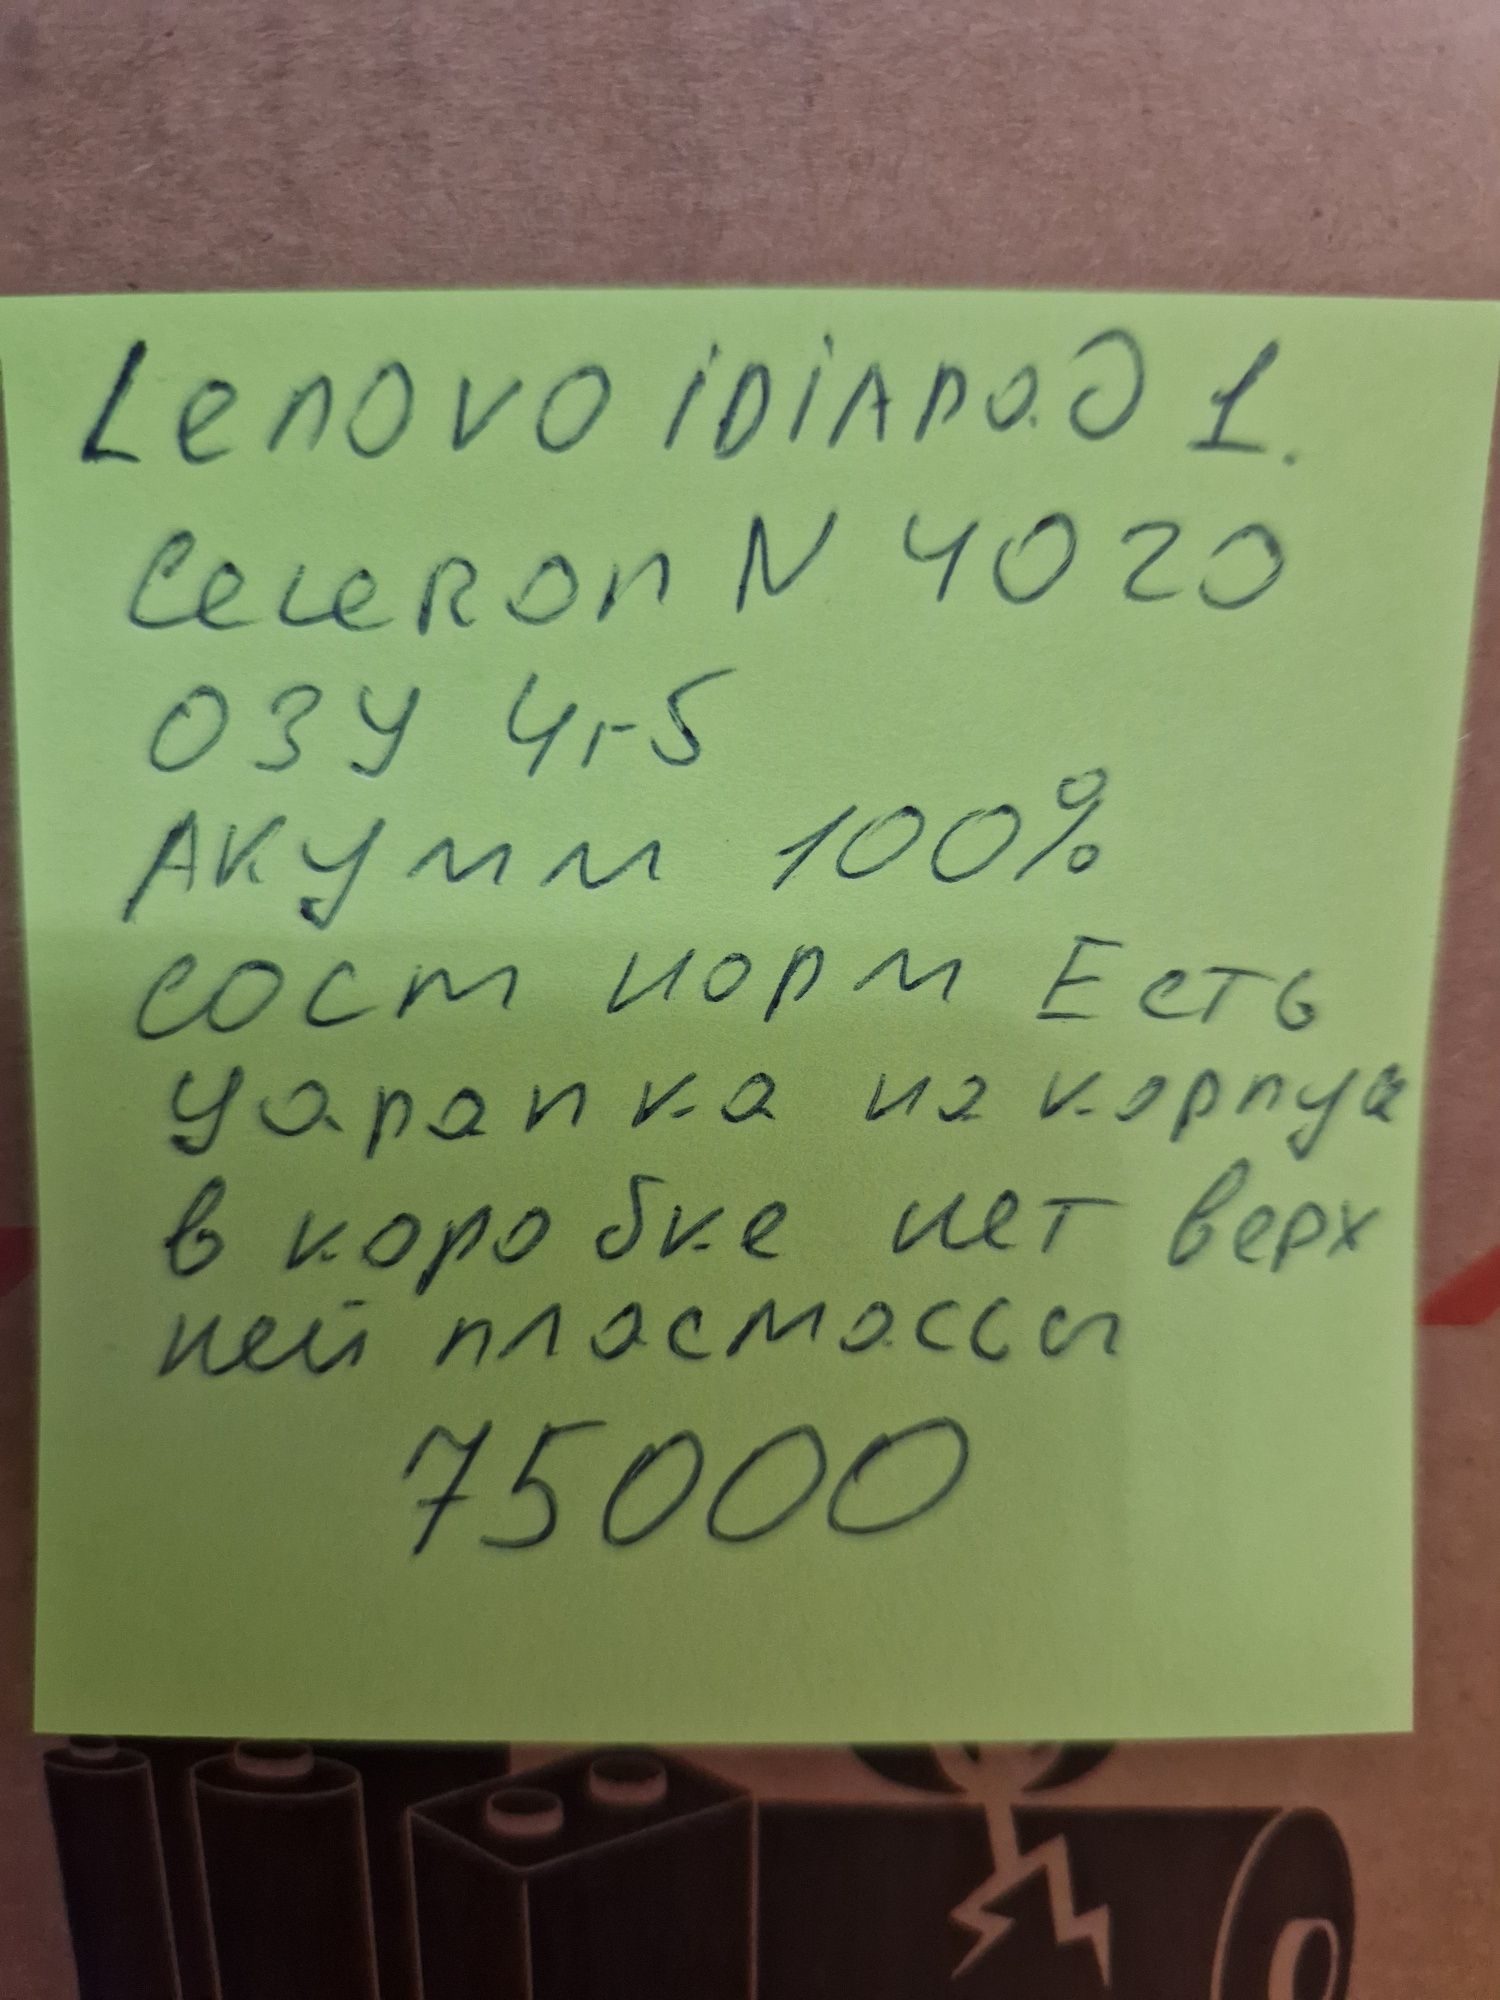 Lenovo iDiApad 1.
Celeron N 4020
ОЗУ 4гб
Акумм 100%
сост норм Есть
царапка на корпусе
в коробке нет верх
ней пласмассы
75000